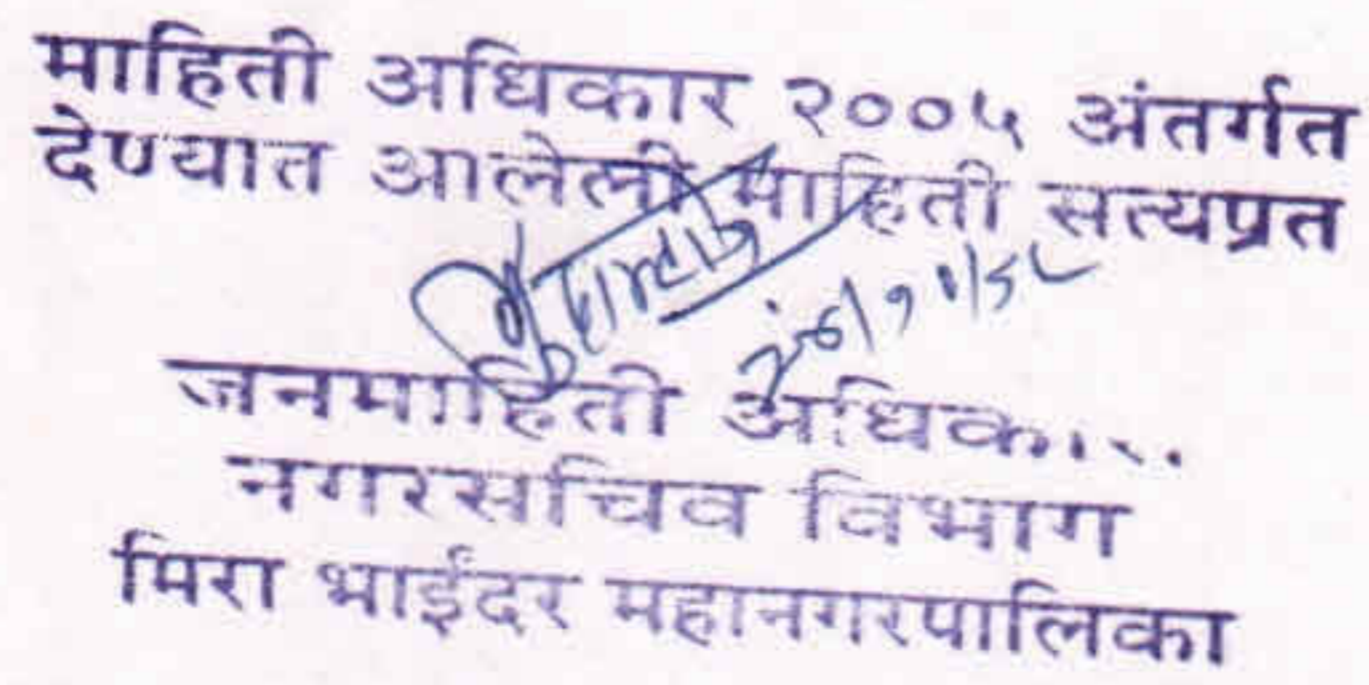 माहिती अधिकार २००५ अंतर्गत
देण्यात आलेली माहिती सत्यप्रत
जनमाहिती
नगरसचिव विभाग
मिरा भाईंदर महानगरपालिका